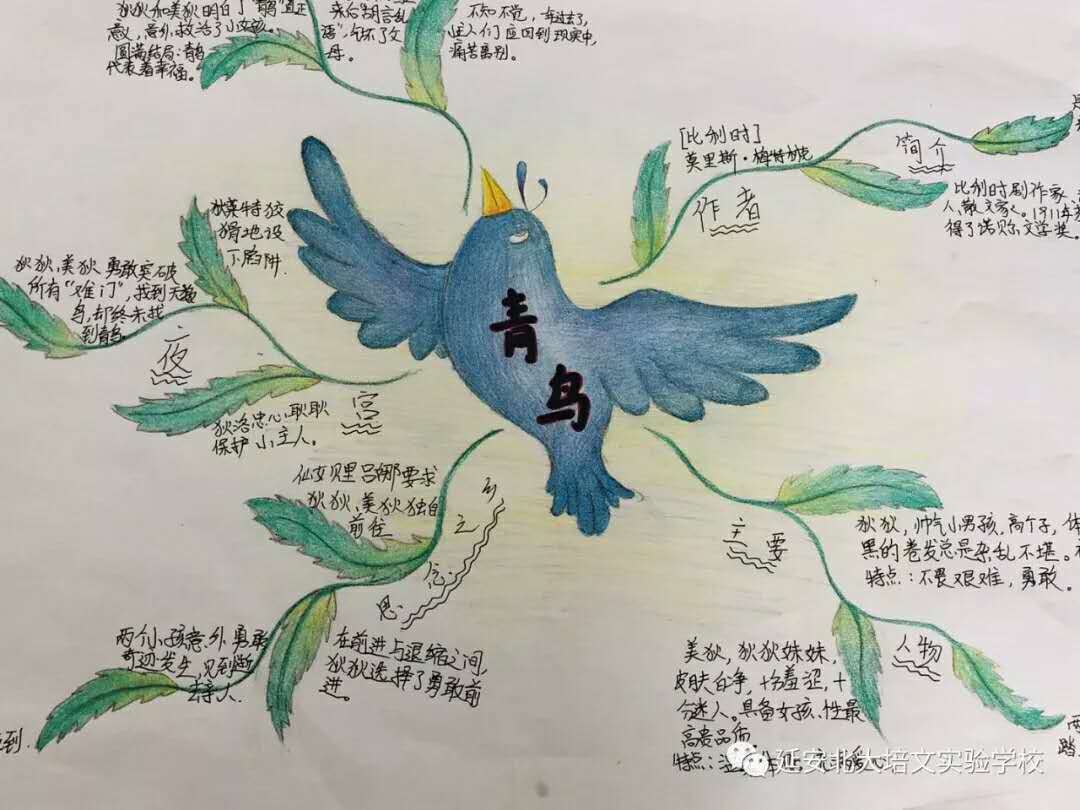 狄狄和美狄明白了“青鸟”真正
意义,意外救治了小女孩。
圆满结局:青鸟
代表着幸福。
来后“胡言乱
语”,吓坏了父
母。
不知不觉,年过去了,
主人们应回到现实中,
痛苦离别。
[比利时]
莫里斯·梅特林克
作者
简介
比利时剧作家
人,散文家。1911年
得了诺贝尔文学奖。
青鸟
狄蒙特狡
猾地设
下陷阱.
狄狄、美狄勇敢突破
所有“难门”,找到天
鸟,却终未找
到青鸟。
夜
宫
狄洛忠心耿耿
保护小主人。
仙女贝里吕娜要求
狄狄、美狄独自
前往
思念之乡
两个小孩意外勇敢
奇迹发生,见到逝
去亲人
在前进与退缩之间,
狄狄选择了勇敢前
进。
到.
主要
人物
狄狄,帅气小男孩,高个子,体
黑的卷发总是杂乱不堪。
特点:不畏艰难,勇敢。
美狄,狄狄妹妹,
皮肤白净,十分羞涩,十
分迷人。具备女孩性最
高贵品质
特点:
踏
延安北大培文实验学校